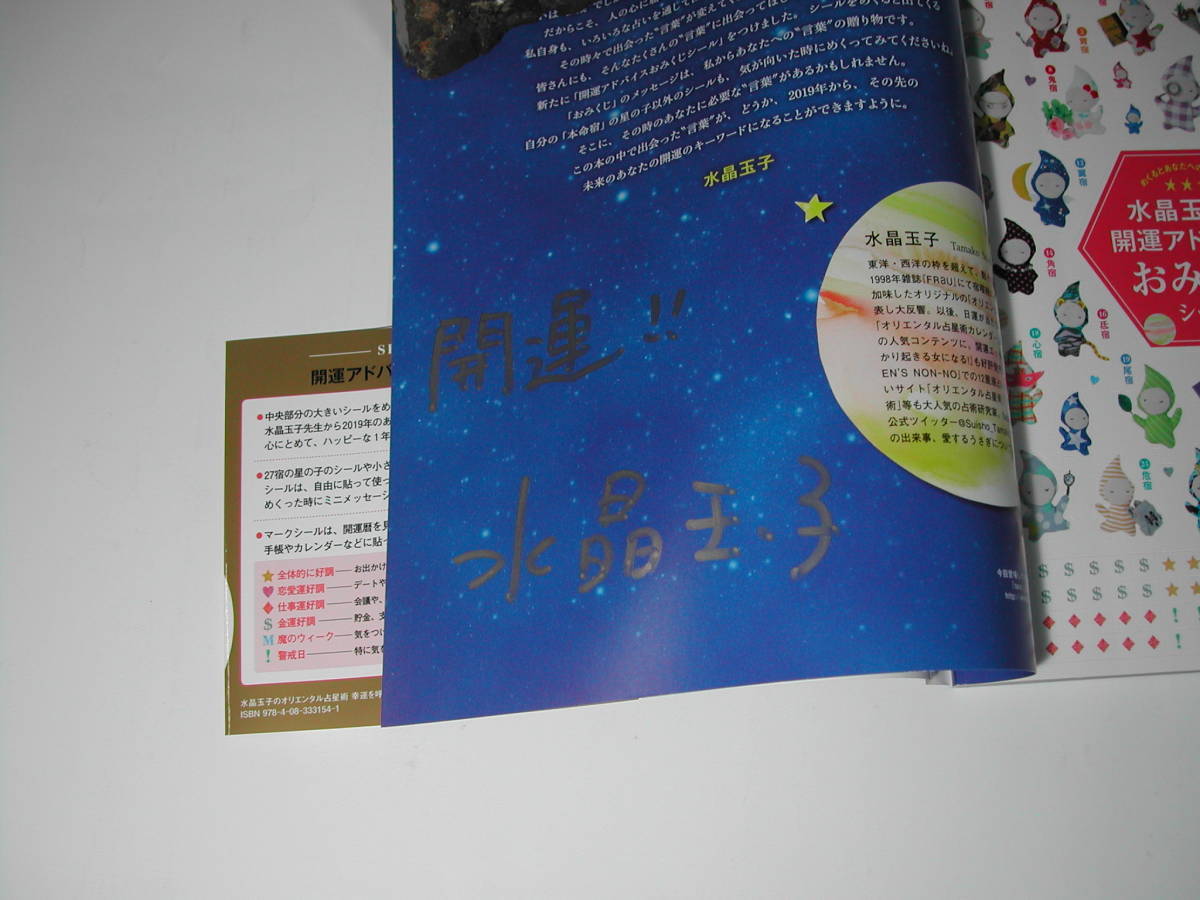 だからこそ、人の心に
私自身も、いろいろな占いを通じて
その時々で出会った“言葉”が変えて
皆さんにも、そんなたくさんの“言葉”に出会ってほ
新たに「開運アドバイスおみくじシール」をつけました。シールをめくると出てくる
「おみくじ」のメッセージは、私からあなたへの“言葉”の贈り物です。
自分の「本命宿」の星の子以外のシールも、気が向いた時にめくってみてくださいね。
そこに、その時のあなたに必要な“言葉”があるかもしれません。
この本の中で出会った“言葉”が、どうか、2019年から、その先の
未来のあなたの開運のキーワードになることができますように。
水晶玉子
水晶玉子 Tamako
東洋・西洋の枠を超えて、
1998年雑誌「FRaU」にて宿曜
加味したオリジナルの「オリエン
表し大反響。以後、日運が
「オリエンタル占星術カレンダー
の人気コンテンツに。開運エッ
かり起きる女になる!」も好評
EN'S NON-NO」での12星座占
いサイト「オリエンタル占星
術」等も大人気の占術研究家。
公式ツイッター@Suisho_Tama
の出来事、愛するうさぎについ
開運!!
水晶玉子
開運アドバ
●中央部分の大きいシールをめ
水晶玉子先生から2019年のあ
心にとめて、ハッピーな1年
●27宿の星の子のシールや小さ
シールは、自由に貼って使っ
めくった時にミニメッセージ
●マークシールは、開運暦を見
手帳やカレンダーなどに貼っ
★ 全体的に好調 ── お出かけ
♥ 恋愛運好調 ── デートや
◆ 仕事運好調 ── 会議や、
$ 金運好調 ── 貯金、支
M 魔のウィーク ── 気をつけ
! 警戒日 ── 特に気を
水晶玉子のオリエンタル占星術 幸運を呼
ISBN 978-4-08-333154-1
めくるとあなたへ
水晶玉
開運アド
おみ
シ
5 觜宿
8 鬼宿
12 翼宿
14 角宿
16 氐宿
18 心宿
19 尾宿
21 危宿